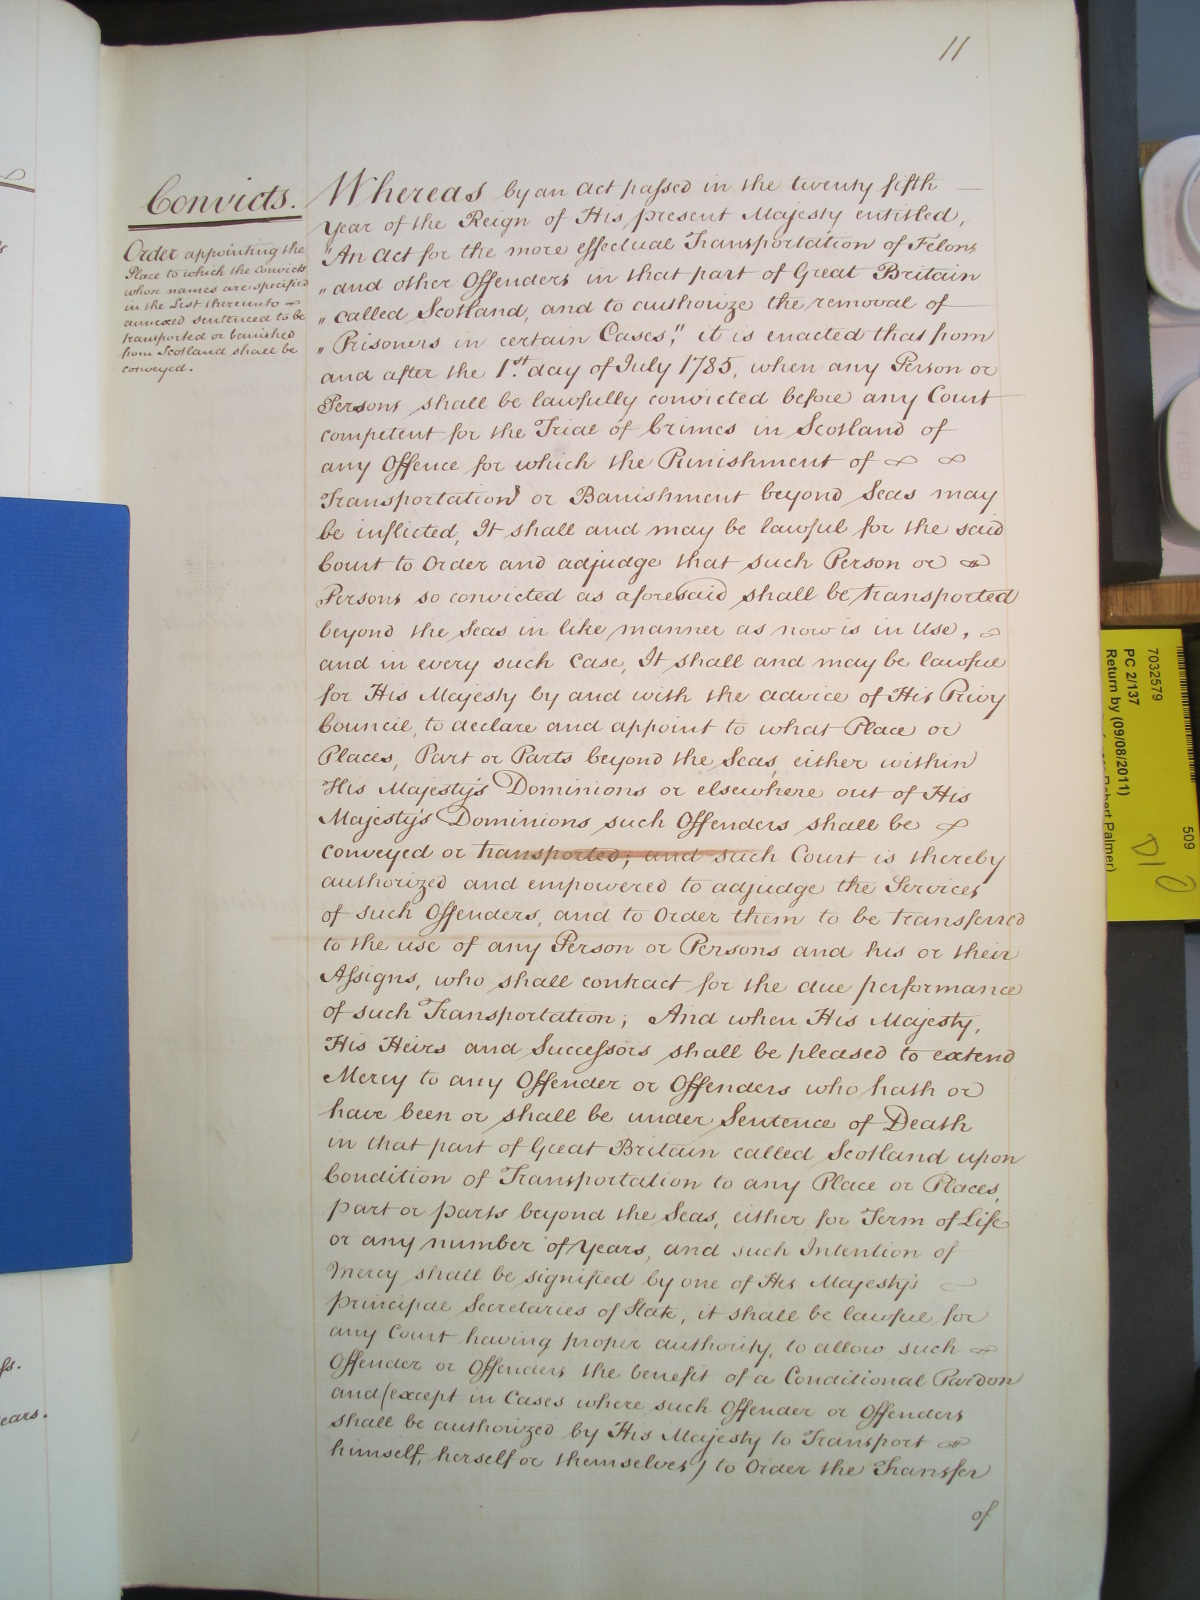 11
Convicts.
Order appointing the
Place to which the Convicts
whose names are specified
in the List thereunto
annexed sentenced to be
transported or banished
from Scotland shall be
conveyed.
Whereas by an Act passed in the twenty fifth
Year of the Reign of His present Majesty entitled,
"An Act for the more effectual Transportation of Felons
"and other Offenders in that part of Great Britain
"called Scotland, and to authorize the removal of
"Prisoners in certain Cases," it is enacted that from
and after the 1st. day of July 1785, when any Person or
Persons shall be lawfully convicted before any Court
competent for the Trial of Crimes in Scotland of
any Offence for which the Punishment of
Transportation or Banishment beyond Seas may
be inflicted, It shall and may be lawful for the said
Court to Order and adjudge that such Person or
Persons so convicted as aforesaid shall be transported
beyond the Seas in like manner as now is in Use,
and in every such Case, It shall and may be lawful
for His Majesty by and with the advice of His Privy
Council, to declare and appoint to what Place or
Places, Part or Parts beyond the Seas, either within
His Majesty's Dominions or elsewhere out of His
Majesty's Dominions such Offenders shall be
conveyed or transported; and such Court is thereby
authorized and empowered to adjudge the Services
of such Offenders, and to Order them to be transferred
to the use of any Person or Persons and his or their
Assigns, who shall contract for the due performance
of such Transportation; And when His Majesty,
His Heirs and Successors shall be pleased to extend
Mercy to any Offender or Offenders who hath or
have been or shall be under Sentence of Death
in that part of Great Britain called Scotland upon
Condition of Transportation to any Place or Places,
part or parts beyond the Seas, either for Term of Life
or any number of Years, and such Intention of
Mercy shall be signified by one of His Majesty's
principal Secretaries of State, it shall be lawful for
any Court having proper authority, to allow such
Offender or Offenders the benefit of a Conditional Pardon
and (except in Cases where such Offender or Offenders
shall be authorized by His Majesty to Transport
himself, herself or themselves) to Order the Transfer
of
ears.
7032579
PC 2/137
Return by (09/08/2011)
Robert Palmer)
509
D10